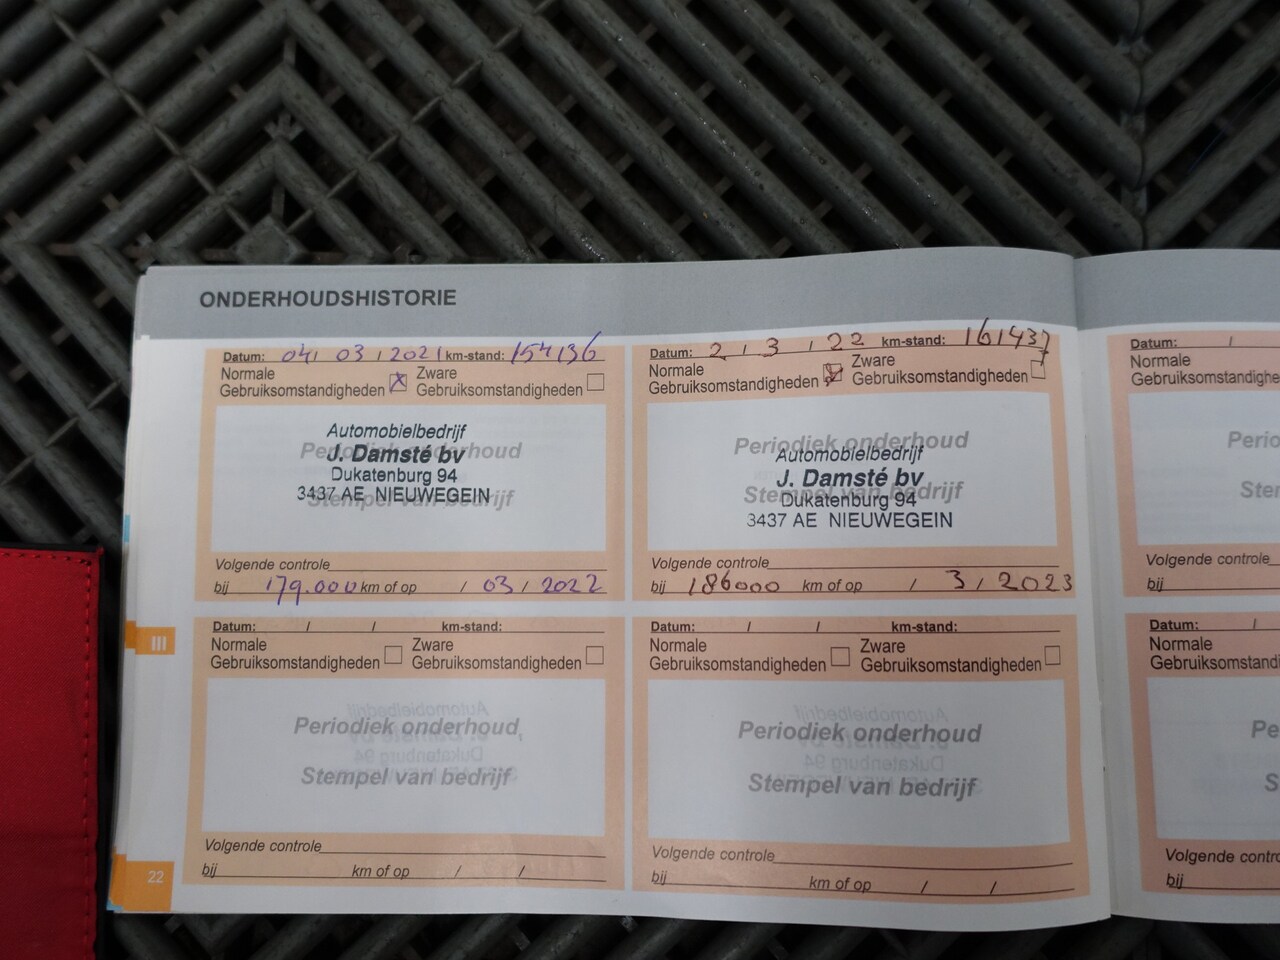 ONDERHOUDSHISTORIE
Datum: 04 / 03 / 2021 km-stand: 154136
Normale
Gebruiksomstandigheden
Zware
Gebruiksomstandigheden
Periodiek onderhoud
Stempel van bedrijf
Automobielbedrijf
J. Damsté bv
Dukatenburg 94
3437 AE NIEUWEGEIN
Volgende controle
bij 179.000 km of op / 03 / 2022
Datum: 2 / 3 / 22 km-stand: 161437
Normale
Gebruiksomstandigheden
Zware
Gebruiksomstandigheden
Periodiek onderhoud
Stempel van bedrijf
Automobielbedrijf
J. Damsté bv
Dukatenburg 94
3437 AE NIEUWEGEIN
Volgende controle
bij 186000 km of op / 3 / 2023
Datum: /
Normale
Gebruiksomstandighe
Perio
Ster
Volgende controle
bij
III
Datum: / / km-stand:
Normale
Gebruiksomstandigheden
Zware
Gebruiksomstandigheden
Periodiek onderhoud
Stempel van bedrijf
Volgende controle
bij km of op / /
Datum: / / km-stand:
Normale
Gebruiksomstandigheden
Zware
Gebruiksomstandigheden
Periodiek onderhoud
Stempel van bedrijf
Volgende controle
bij km of op / /
Datum: /
Normale
Gebruiksomstandigh
Pe
S
Volgende contro
bij
22